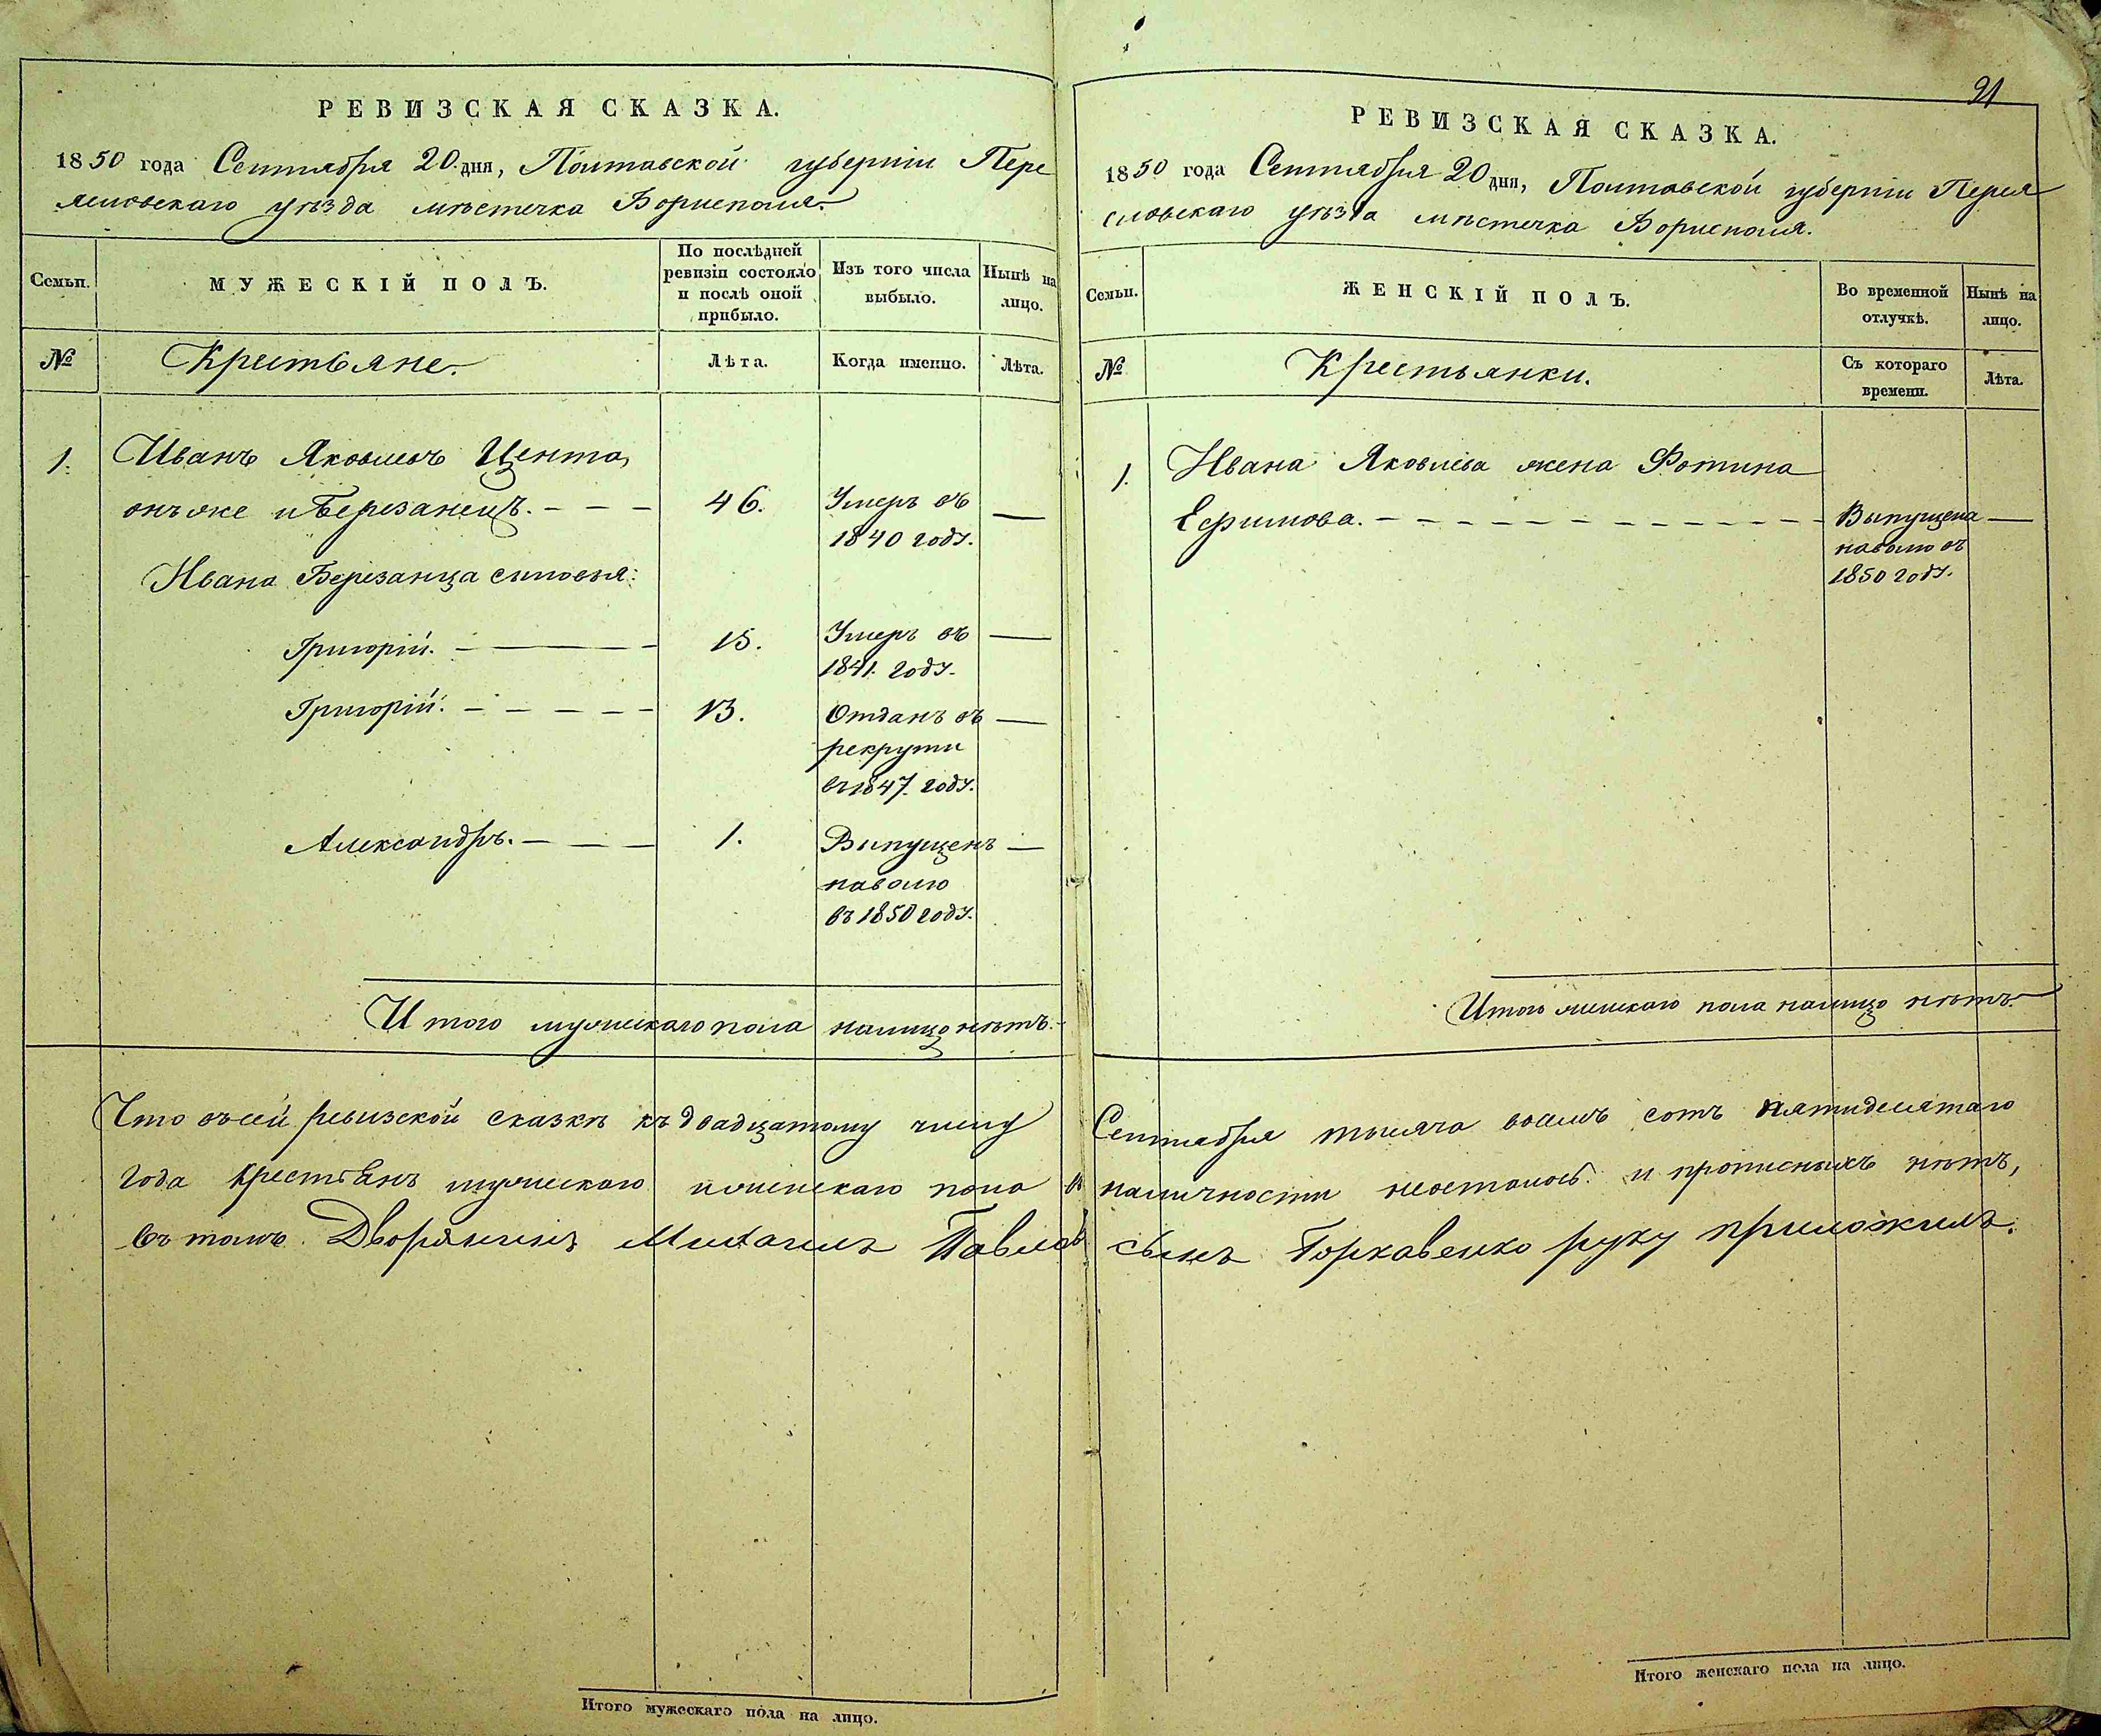 РЕВИЗСКАЯ СКАЗКА.
1850 года Сентября 20 дня, Полтавской губерніи Пере
яславскаго уѣзда мѣстечка Борисполя.
Семьи.
МУЖЕСКІЙ ПОЛЪ.
По послѣдней
ревизіи состояло
и послѣ оной
прибыло.
Изъ того числа
выбыло.
Нынѣ на
лицо.
№
Крестьяне.
Лѣта.
Когда именно.
Лѣта.
1.
Иванъ Яковлевъ Цента,
онъ же и Березанецъ. - - -
46.
Умеръ въ —
1840 году.
Ивана Березанца сыновья:
Григорій. —
15.
Умеръ въ —
1841. году.
Григорій. - - - -
13.
Отданъ въ —
рекруты
въ 1847. году.
Александръ. - - -
1.
Выпущенъ —
наволю
въ 1850 году.
Итого мужескаго пола налицо нѣтъ.
Что въ сей ревизской сказкѣ къ двадцатому числу
года крестьянъ мужескаго и женскаго пола въ
въ томъ. Дворянинъ Михаилъ Павловъ
Итого мужескаго пола на лицо.
21
РЕВИЗСКАЯ СКАЗКА.
1850 года Сентября 20 дня, Полтавской губерніи Перея
славскаго уѣзда мѣстечка Борисполя.
Семьи.
ЖЕНСКІЙ ПОЛЪ.
Во временной
отлучкѣ.
Нынѣ на
лицо.
№
Крестьянки.
Съ котораго
времени.
Лѣта.
1.
Ивана Яковлева жена Фотина
Ефимова. - - - - - - - - - - -
Выпущена —
наволю въ
1850 году.
Итого женскаго пола налицо нѣтъ.
Сентября тысяча восемь сотъ пятидесятаго
наличности неосталось и прописныхъ нѣтъ,
сынъ Горкавенко руку приложилъ.
Итого женскаго пола на лицо.